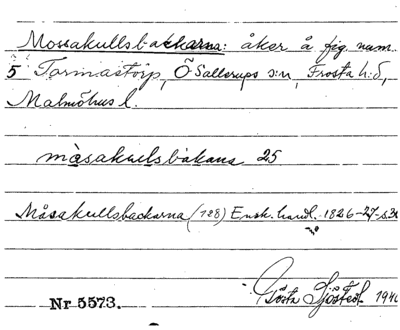 Mossakullsbackarna: åker å fig. num.
5 Tormastorp, Ö Sallerups s:n, Frosta h:d,
Malmöhus l.
måsakulsbakana 25
Måsakullsbackarna (128) Ensk. handl. 1826-27 s. 30
Gösta Sjöstedt 1940
Nr 5573.